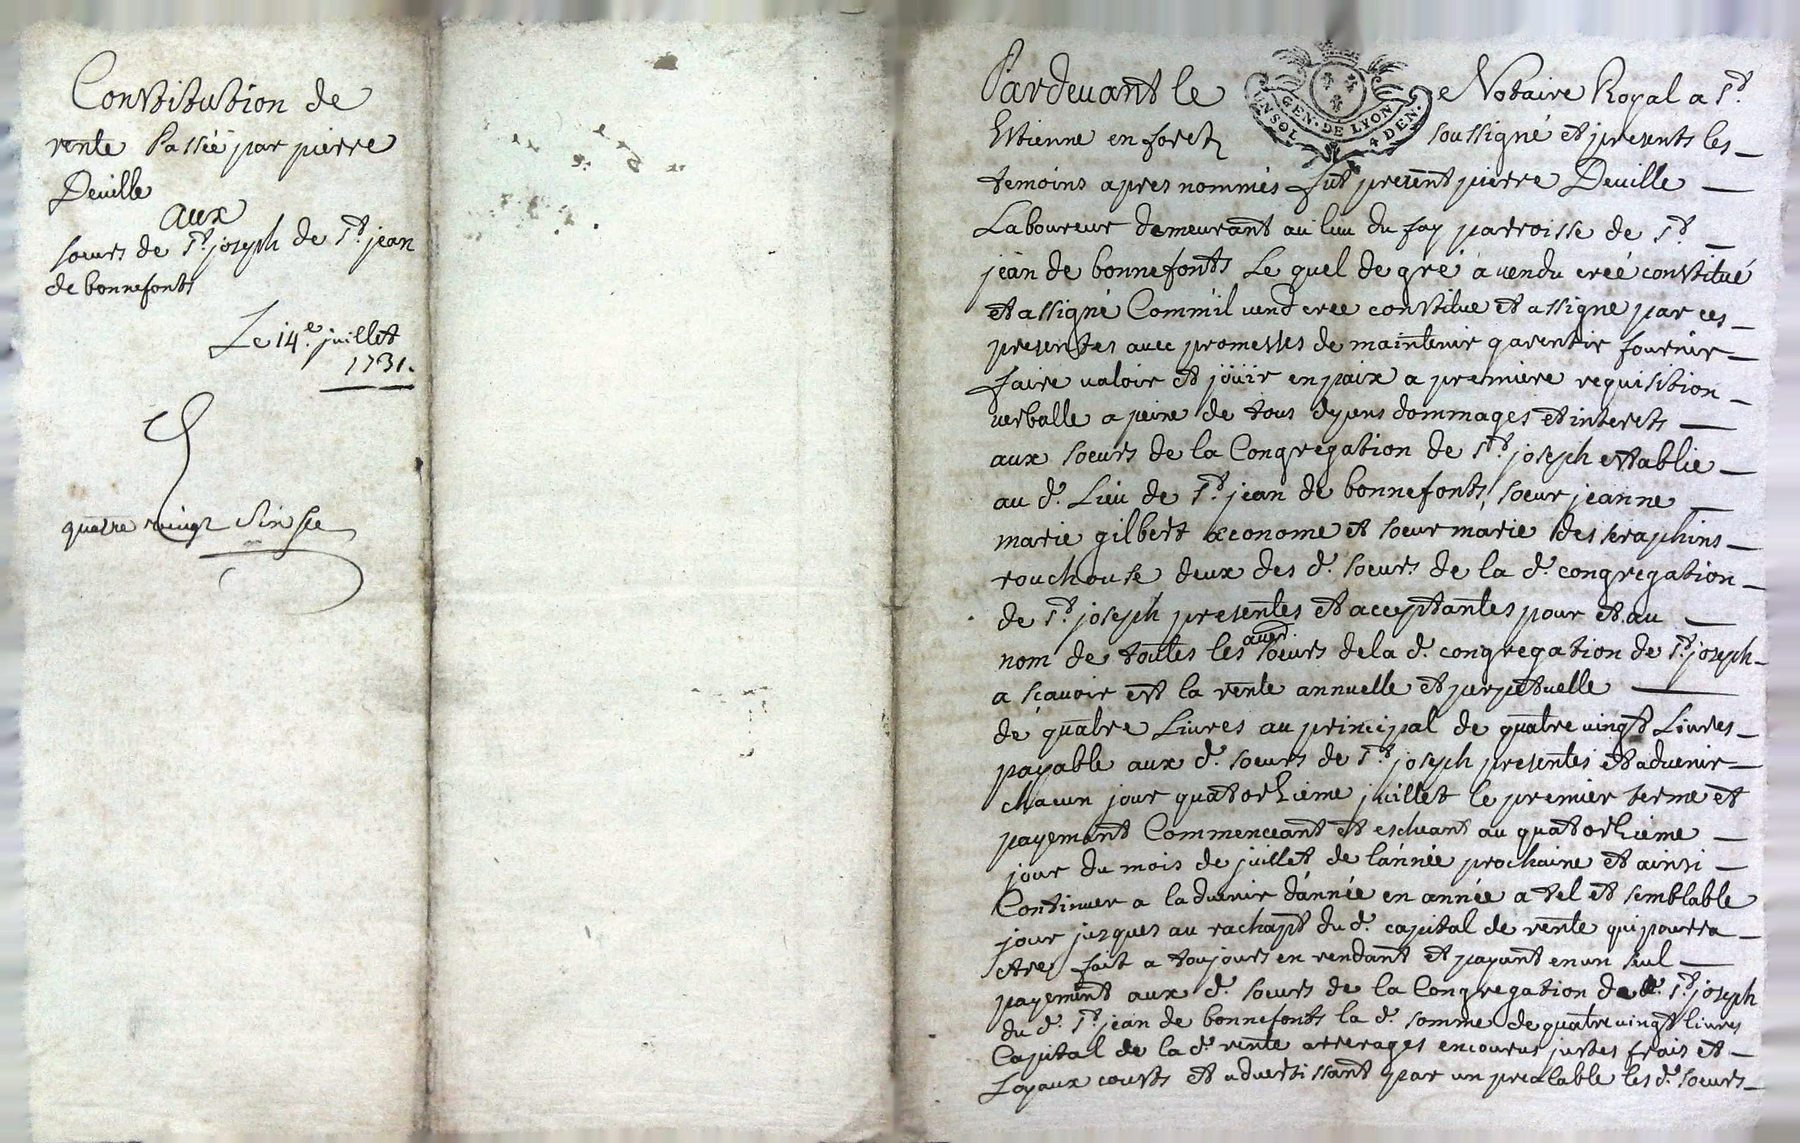 Constitution de
rente Passéé par pierre
Deville
aux
soeurs de St. joseph de St. jean
de bonnefonts
Le 14e. juillet
1731.
quatre vingt
Pardevant le Notaire Royal a St.
GEN. DE LYON
UN SOL 4 DEN.
Estienne en forest soussigné et presents les
temoins apres nommés fut present pierre Deville
Laboureur demeurant au lieu du fay parroisse de St.
jean de bonnefonts Le quel de gré a vendu creé constitué
et assigné Comm'il vend cree constitue et assigne par ces
presentes avec promesses de maintenir garentir fournir
faire valoir et joüir en paix a premiere requisition
verballe a peine de tous depens dommages et interets
aux soeurs de la Congregation de St. joseph establie
au d. Lieu de St. jean de bonnefonts, soeur jeanne
marie gilbert œconome et soeur marie des seraphins
rouchouse deux des d. soeurs de la d. congregation
de St. joseph presentes et acceptantes pour et au
nom de toutes les soeurs de la d. congregation de St. joseph
a sçavoir est la rente annuelle et perpetuelle
de quatre Livres au principal de quatre vingt Livres
payable aux d. soeurs de St. joseph presentes et advenir
chacun jour quatorzieme juillet le premier terme et
payement Commenceant et escheant au quatorzieme
jour du mois de juillet de l'année prochaine et ainsi
Continuer a ladvenir d'année en année a tel et semblable
jour jusques au rachapt du d. capital de rente qui pourra
etre fait a toujours en rendant et payant en un seul
payement aux d. soeurs de la Congregation de St. joseph
du d. St. jean de bonnefonts la d. somme de quatre vingt livres
Capital de la d. rente arrerages encourus justes frais et
Loyaux cousts et advertissant par un prealable les d. soeurs